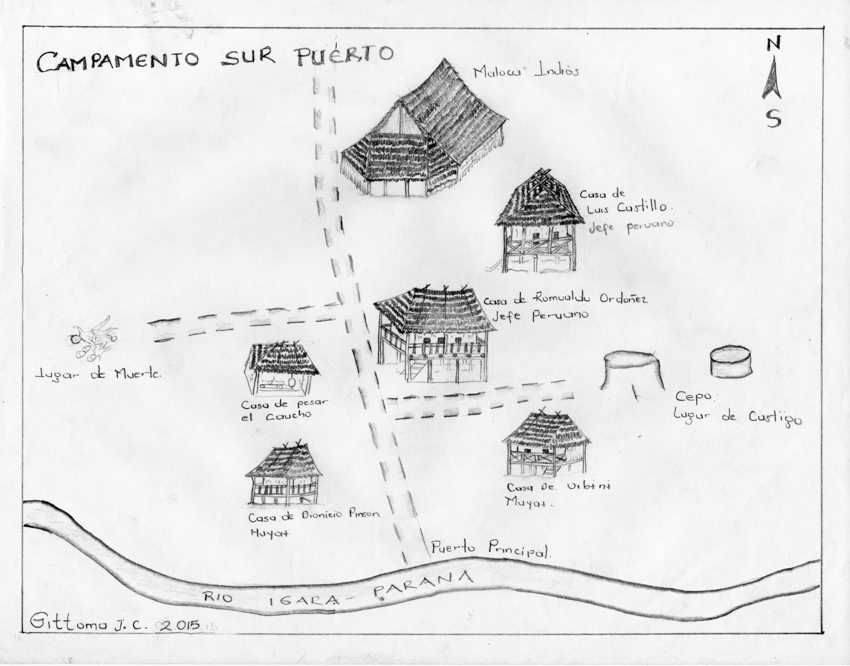 CAMPAMENTO SUR PUÉRTO
N
S
Maloca Indios
Casa de
Luis Castillo.
Jefe peruano
Casa de Romualdo Ordoñez
Jefe Peruano
Lugar de Muerte.
Casa de pesar
el Caucho
Cepo.
Lugar de Custigo
Casa De Urbini
Muyat.
Casa de Dionicio Pinson
Muyat
Puerto Principal.
RIO IGARA-PARANÁ
Gittoma J.C. 2015